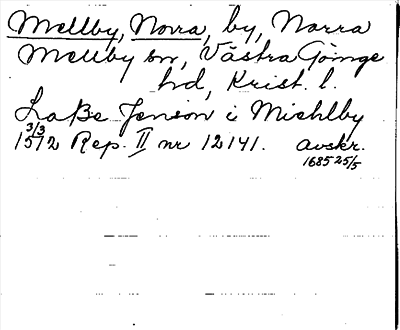 Mellby, Norra, by, Norra
Mellby sn, Västra Göinge
hd, Krist. l.
LaBe Jenson i Michlby
3/3
1512 Rep. II nr 12141. avskr.
1685 25/5